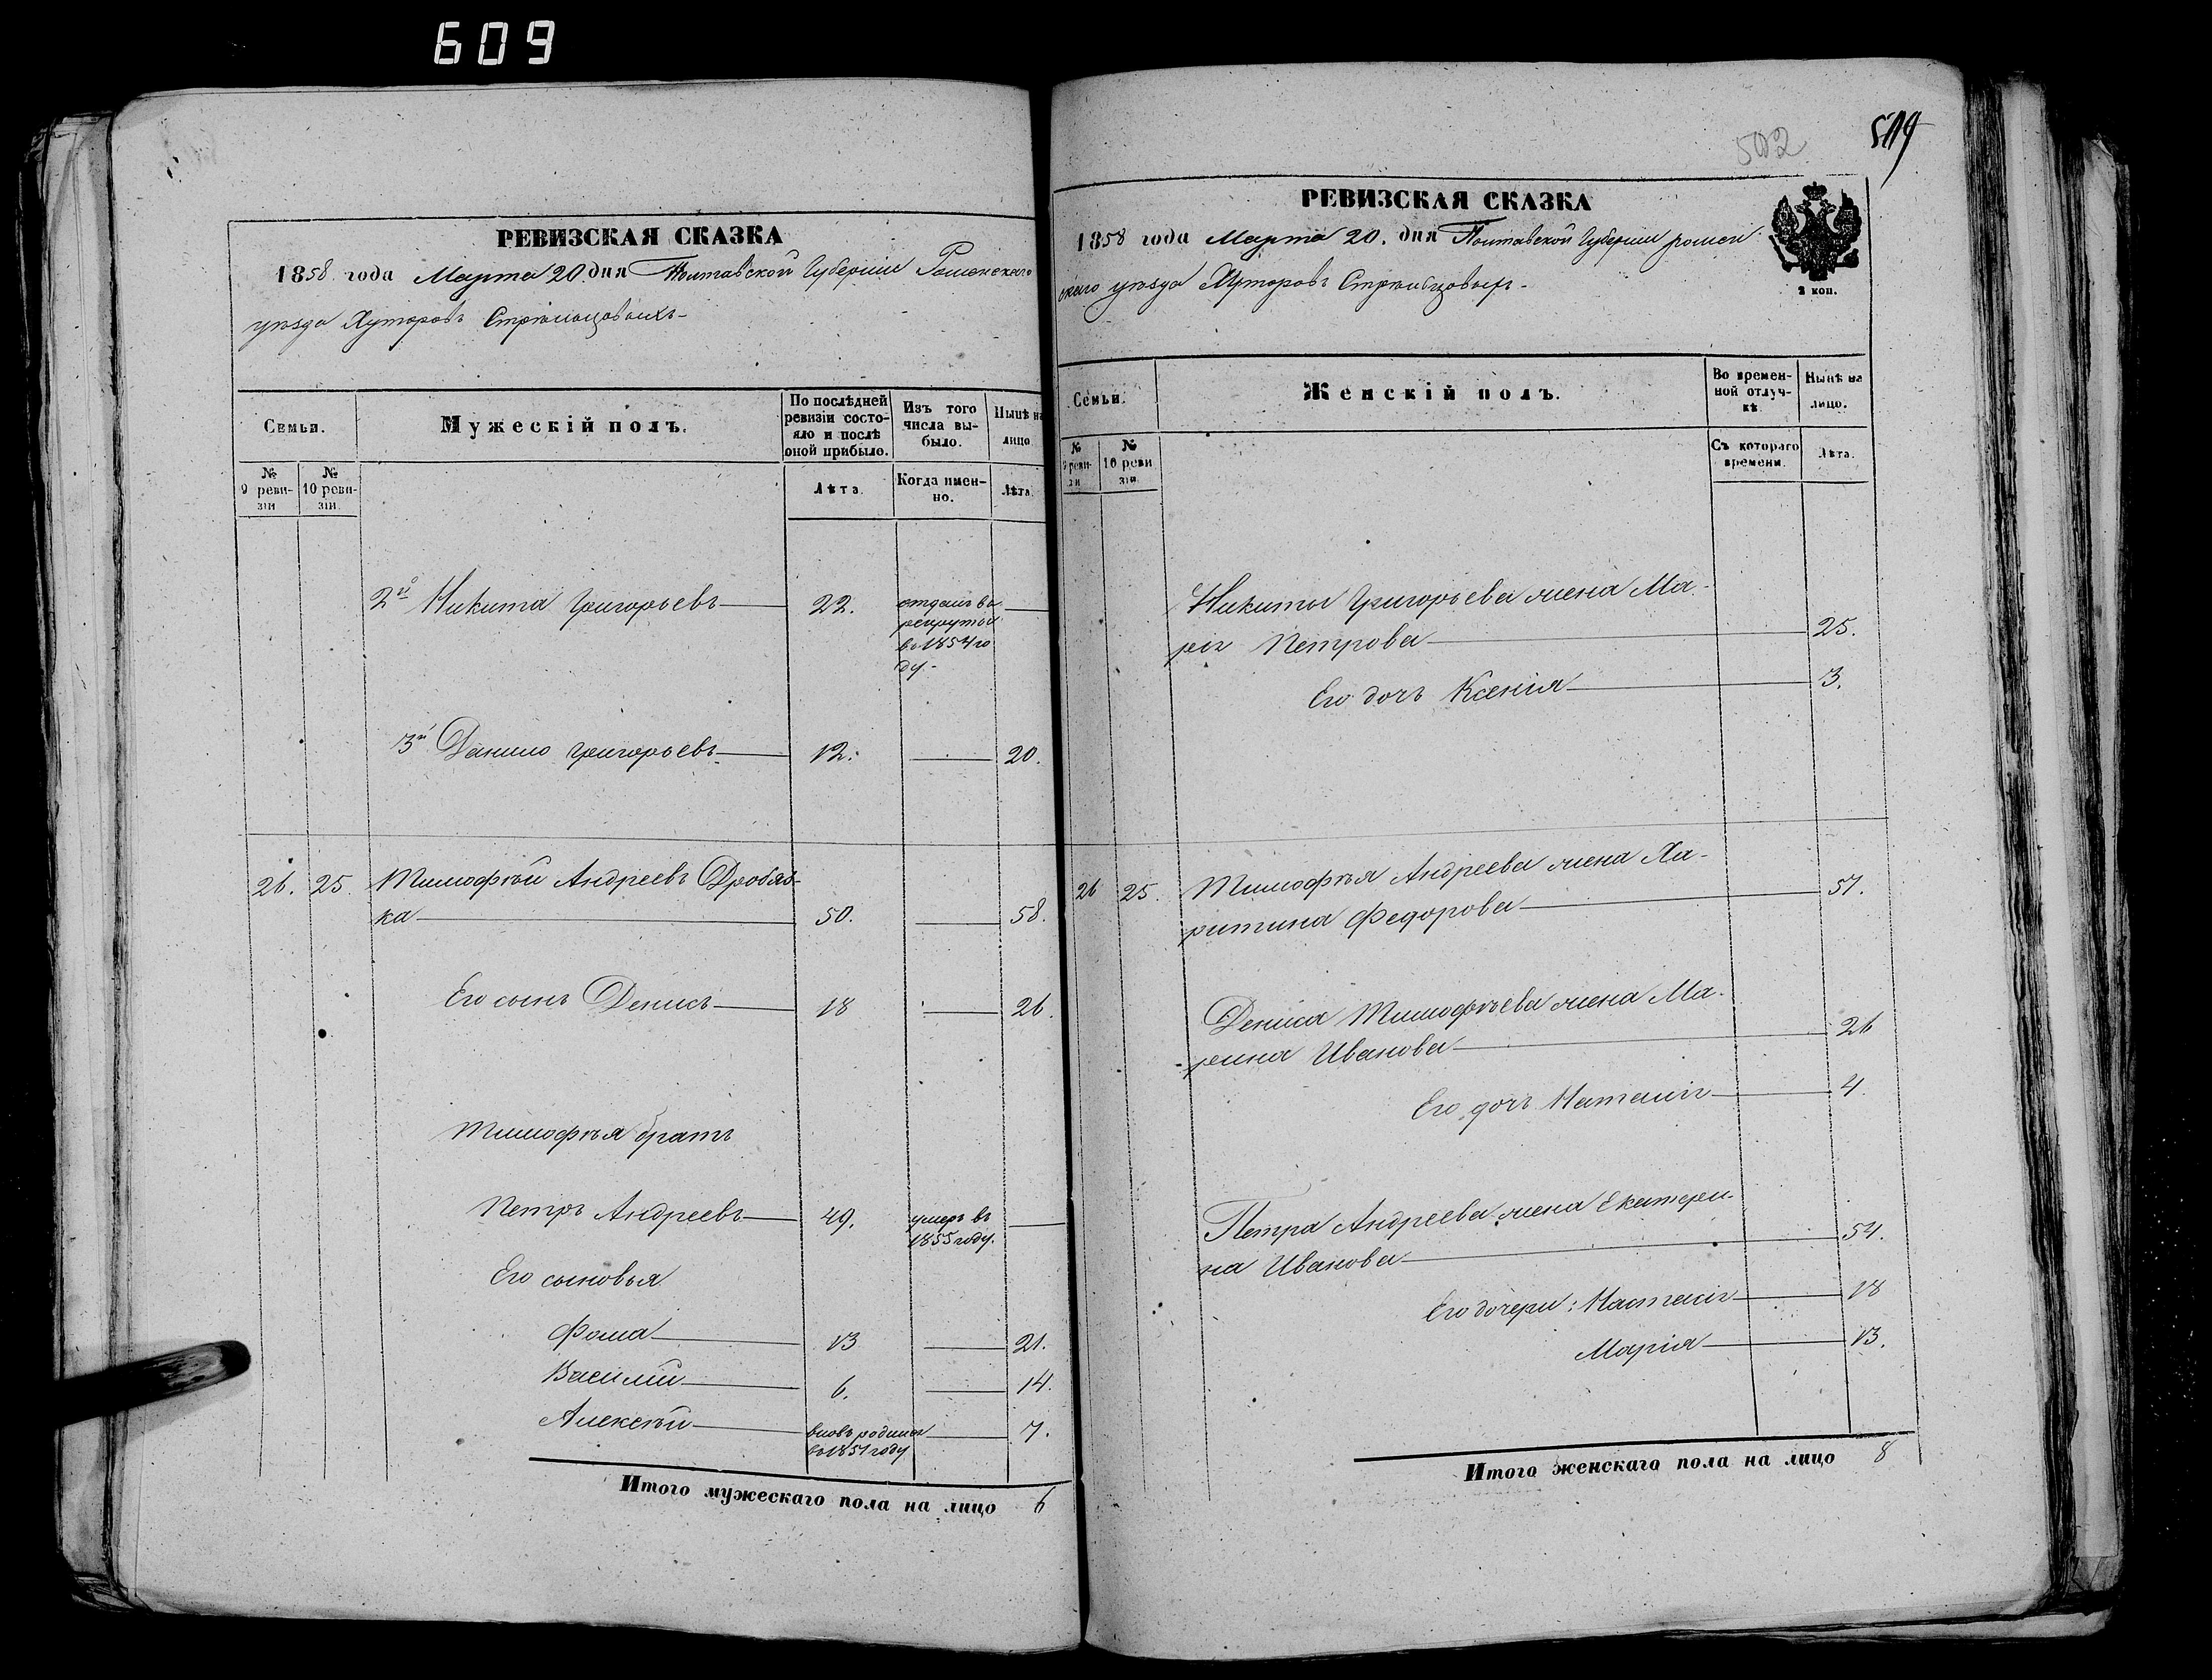 609
РЕВИЗСКАЯ СКАЗКА
1858 года Марта 20. дня Полтавской Губерніи Роменскаго
уѣзда Хуторовъ Стрѣльцовыхъ-
Семьи.
Мужескій полъ.
По послѣдней
ревизіи состо-
яло и послѣ
оной прибыло.
Изъ того
числа вы-
было.
Нынѣ на
лицо
№
9 реви-
зіи
№
10 реви-
зіи.
Лѣта.
Когда имен-
но.
Лѣта.
2й Никита Григорьевъ 22. отданъ въ
рекруты
въ 1854 го
ду.-
3й Данило Григорьевъ 12. 20.
26. 25 Тимофѣй Андреевъ Дробяз-
ка 50. 58.
Его сынъ Денисъ 18 26.
Тимофѣя братъ
Петръ Андреевъ 49. умеръ въ
1855 году.
Его сыновья
Фома 13 21.
Василій 6. 14.
Алексѣй вновь родился 7.
въ 1851 году
Итого мужескаго пола на лицо 6
502
519
РЕВИЗСКАЯ СКАЗКА
1858 года Марта 20. дня Полтавской Губерніи ромен
скаго уѣзда Хуторовъ Стрѣльцовыхъ-
2 коп.
Семьи.
Женскій полъ.
Во времен-
ной отлуч-
кѣ.
Нынѣ на
лицо.
№
9 реви-
зіи
№
10 реви
зіи
Съ котораго
времени.
Лѣта.
Никиты Григорьева жена Ма-
рія Петрова 25.
Его дочь Ксенія 3.
26 25. Тимофѣя Андреева жена Ха-
ритина Федорова 57.
Дениса Тимофѣева жена Ма-
рина Иванова 26
Его дочь Наталія 4.
Петра Андреева жена Екатери-
на Иванова 54.
Его дочери: Настасія 18
Марія 13.
Итого женскаго пола на лицо 8